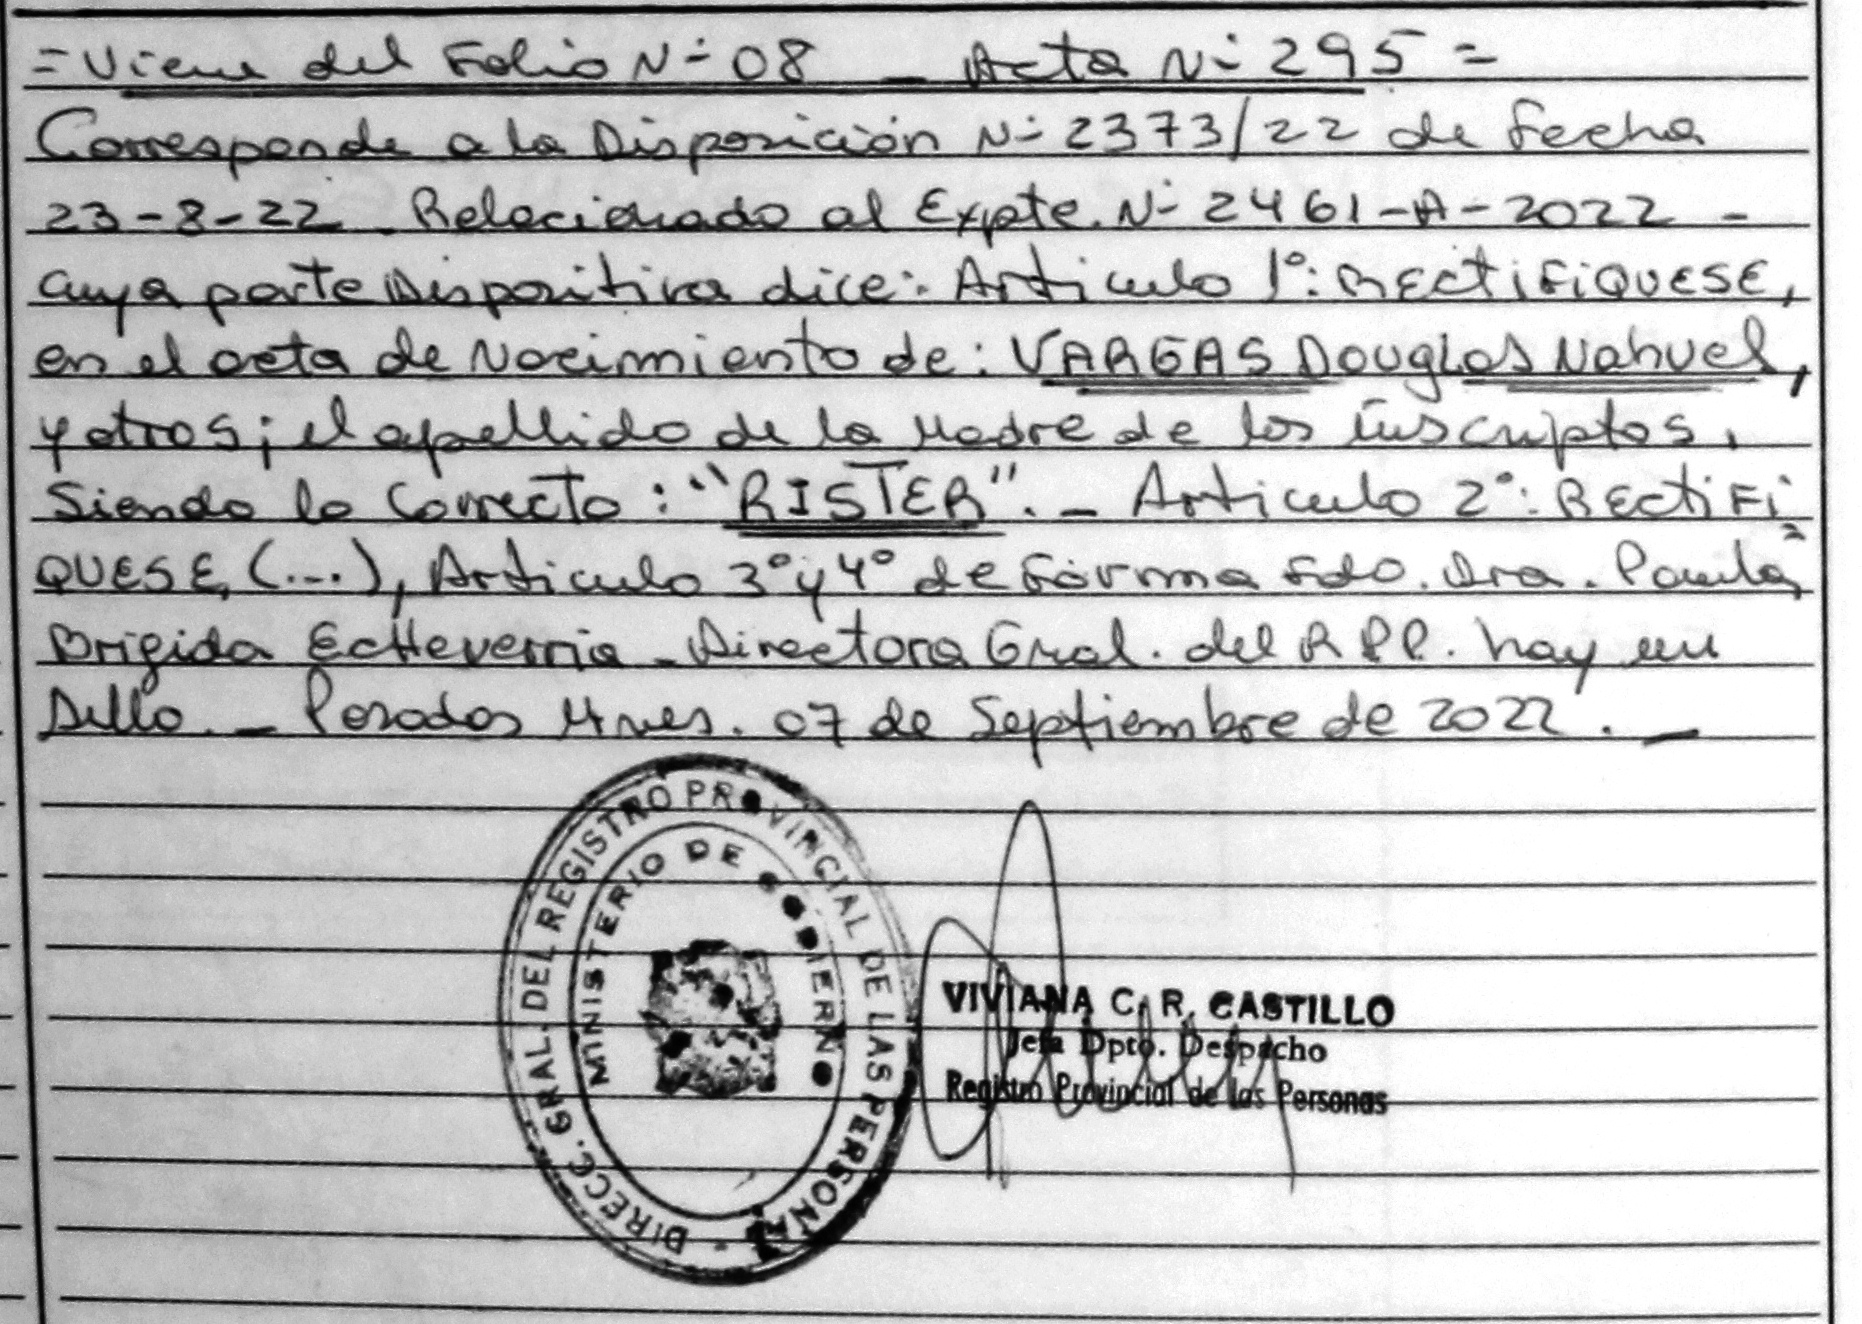 = Viene del Folio Nº 08 _ Acta Nº 295 =
Corresponde a la Disposición Nº 2373/22 de fecha
23-8-22. Relacionado al Expte. Nº 2461-A-2022 -
cuya parte Dispositiva dice: Articulo 1º: RECTIFIQUESE,
en el acta de Nacimiento de: VARGAS Douglas Nahuel,
y otros; el apellido de la Madre de los inscriptos,
Siendo lo Correcto: "RISTER". _ Articulo 2º: RECTIFI
QUESE, (...), Articulo 3º y 4º de Forma Fdo. Dra. Paula
Brigida Echeverria - Directora Gral. del R P P. hay un
Sello. _ Posadas Mnes. 07 de Septiembre de 2022. _
DIRECC. GRAL. DEL REGISTRO PROVINCIAL DE LAS PERSONAS -
MINISTERIO DE GOBIERNO
VIVIANA C. R. CASTILLO
Jefa Dpto. Despacho
Registro Provincial de las Personas